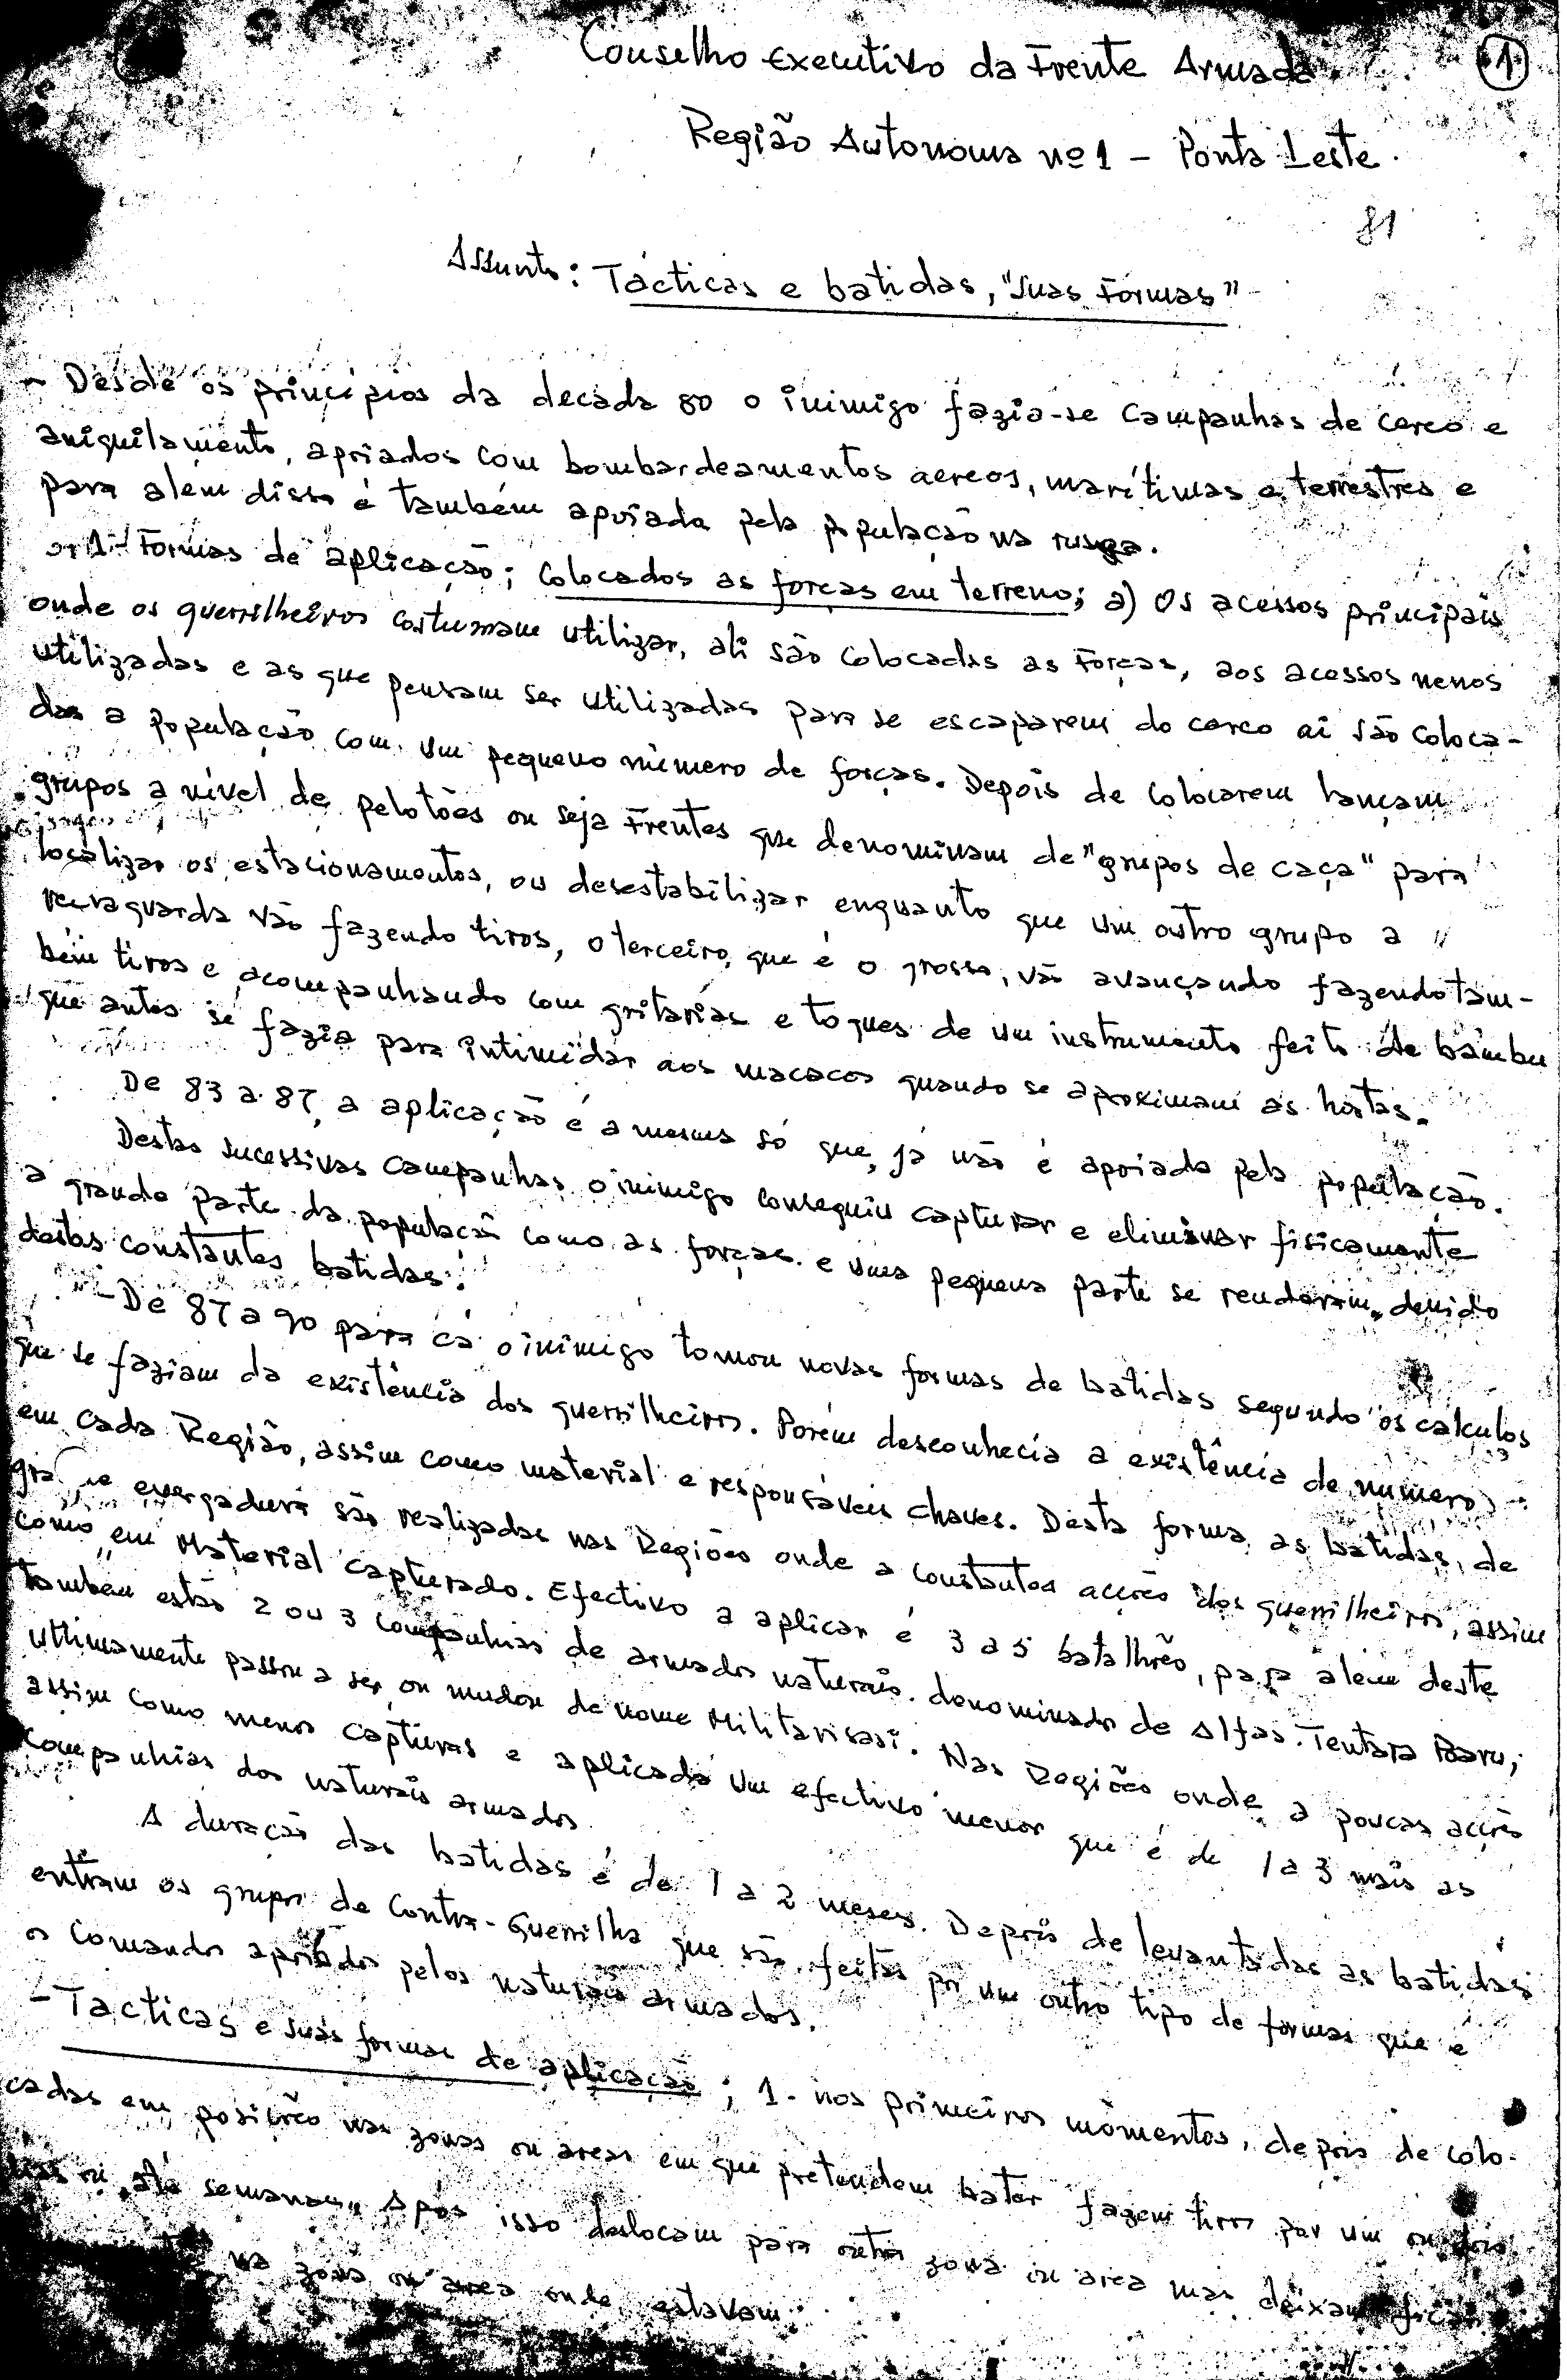 Conselho Executivo da Frente Armada.
1
Região Autonoma nº 1 - Ponta Leste.
81
Assunto: Tácticas e batidas, "suas Formas"
- Desde os principios da decada 80 o inimigo fazia-se campanhas de cerco e
aniquilamento, apoiados com bombardeamentos aereos, marítimas e terrestres e
para alem disso é também apoiada pela população na rusga.
1- Formas de aplicação; Colocados as forças em terreno; a) Os acessos principais
onde os guerrilheiros costumam utilizar, ali são colocadas as Forças, aos acessos menos
utilizadas e as que pensam ser utilizadas para se escaparem do cerco aí são coloca-
das a população com um pequeno número de forças. Depois de colocarem lançam
grupos a nível de pelotões ou seja Frentes que denominam de "grupos de caça" para
localizar os estacionamentos, ou desestabilizar enquanto que um outro grupo a "
retraguarda vão fazendo tiros, o terceiro, que é o grosso, vão avançando fazendo tam-
bém tiros e acompanhando com gritarias e toques de um instrumento feito de bambu
que antes se fazia para intimidar aos macacos quando se aproximam as hortas.
De 83 a 87, a aplicação é a mesma só que, já não é apoiada pela população.
Destas sucessivas campanhas o inimigo conseguiu capturar e eliminar fisicamente
a grande parte da população como as forças e uma pequena parte se renderam, devido
destas constantes batidas.
- De 87 a 90 para cá o inimigo tomou novas formas de batidas segundo os calculos
que se faziam da existência dos guerrilheiros. Porém desconhecia a existência de numero
em cada Região, assim como material e responsáveis chaves. Desta forma as batidas, de
envergadura são realizadas nas Regiões onde a constantes acções dos guerrilheiros, assim
como em Material capturado. Efectivo a aplicar é 3 a 5 batalhões, para alem deste
também estão 2 ou 3 companhias de armados naturais denominado de Alfas. Tentara Baru;
ultimamente passou a ser ou mudou de nome Militarisasi. Nas Regiões onde a poucas acções
assim como menos capturas e aplicada um efectivo menor que é de 1 a 3 mais as
companhias dos naturais armados.
A duração das batidas é de 1 a 2 meses. Depois de levantadas as batidas
entram os grupos de Contra-Guerrilha que são feitas por um outro tipo de formas que é
os Comandos apoiados pelos naturais armados.
- Tacticas e suas formas de aplicação; 1- nos primeiros momentos, depois de colo-
cadas em posições nas zonas ou areas em que pretendem bater fazem tiros por um ou dois
dias ou até semanas. Após isso deslocam para outra zona ou area mas deixam ficar
na zona ou area onde estavam